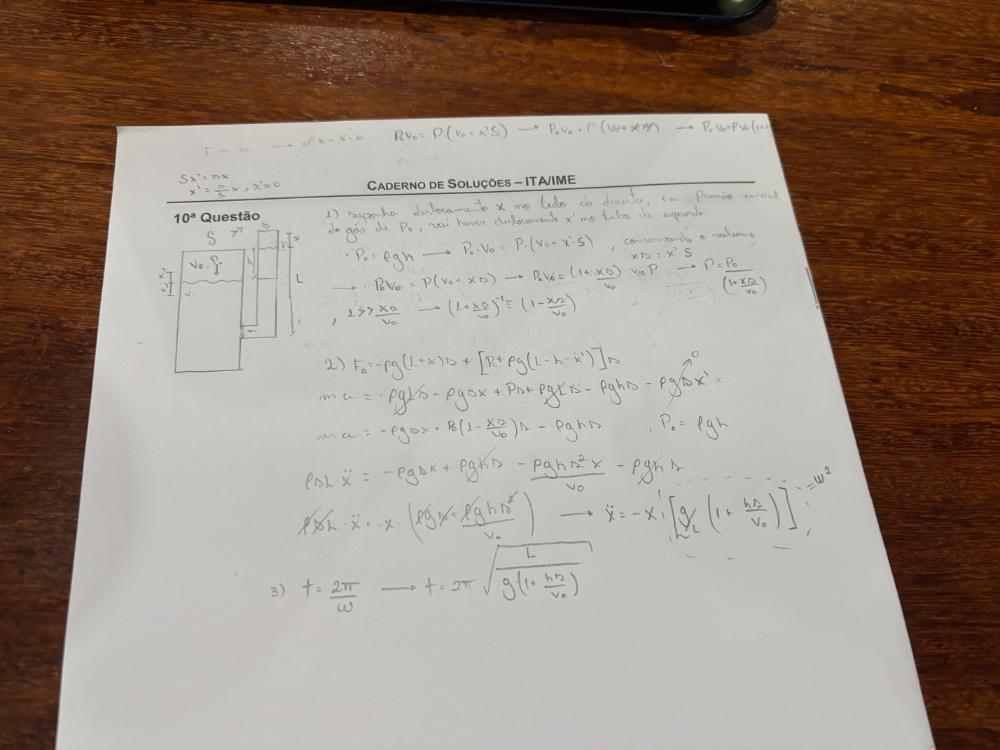 F = m a → ω²x
P₀V₀ = P(V₀ + x'S) → P₀V₀ = P(V₀ + xs) → P₀V₀ = PV₀(1+
Sx' = sx
x' = s/S x, x' ≈ 0
CADERNO DE SOLUÇÕES – ITA/IME
10ª Questão
1) Suponha deslocamento x no tubo da direita, pressão inicial
do gás de P₀, vai haver deslocamento x' no tubo da esquerda
S
s
x
V₀, P₀
h
L
x'
· P₀ = ρgh → P₀·V₀ = P·(V₀ - x'·S), conservando o volume,
xs = x'·S
→ P₀V₀ = P(V₀ + xs) → P₀V₀ = (1 + xs/V₀) V₀P → P = P₀/(1 + xs/V₀)
, 1 >> xs/V₀ → (1 + xs/V₀)⁻¹ ≅ (1 - xs/V₀)
2) = -ρg(L+x)s + [P + ρg(L-h-x')]s
ma = -ρgLs - ρgsx + Ps + ρgLs - ρghs - ρgsx' 0
ma = -ρgsx + P₀(1 - xs/V₀)s - ρghs , P₀ = ρgh
ρsL ẍ = -ρgsx + ρghs - ρghs²x/V₀ - ρghs
ρsL·ẍ = -x·(ρgs + ρghs²/V₀) → ẍ = -x·[g/L (1 + hs/V₀)] = ω²
3) t = 2π/ω → t = 2π √(L/(g(1 + hs/V₀)))